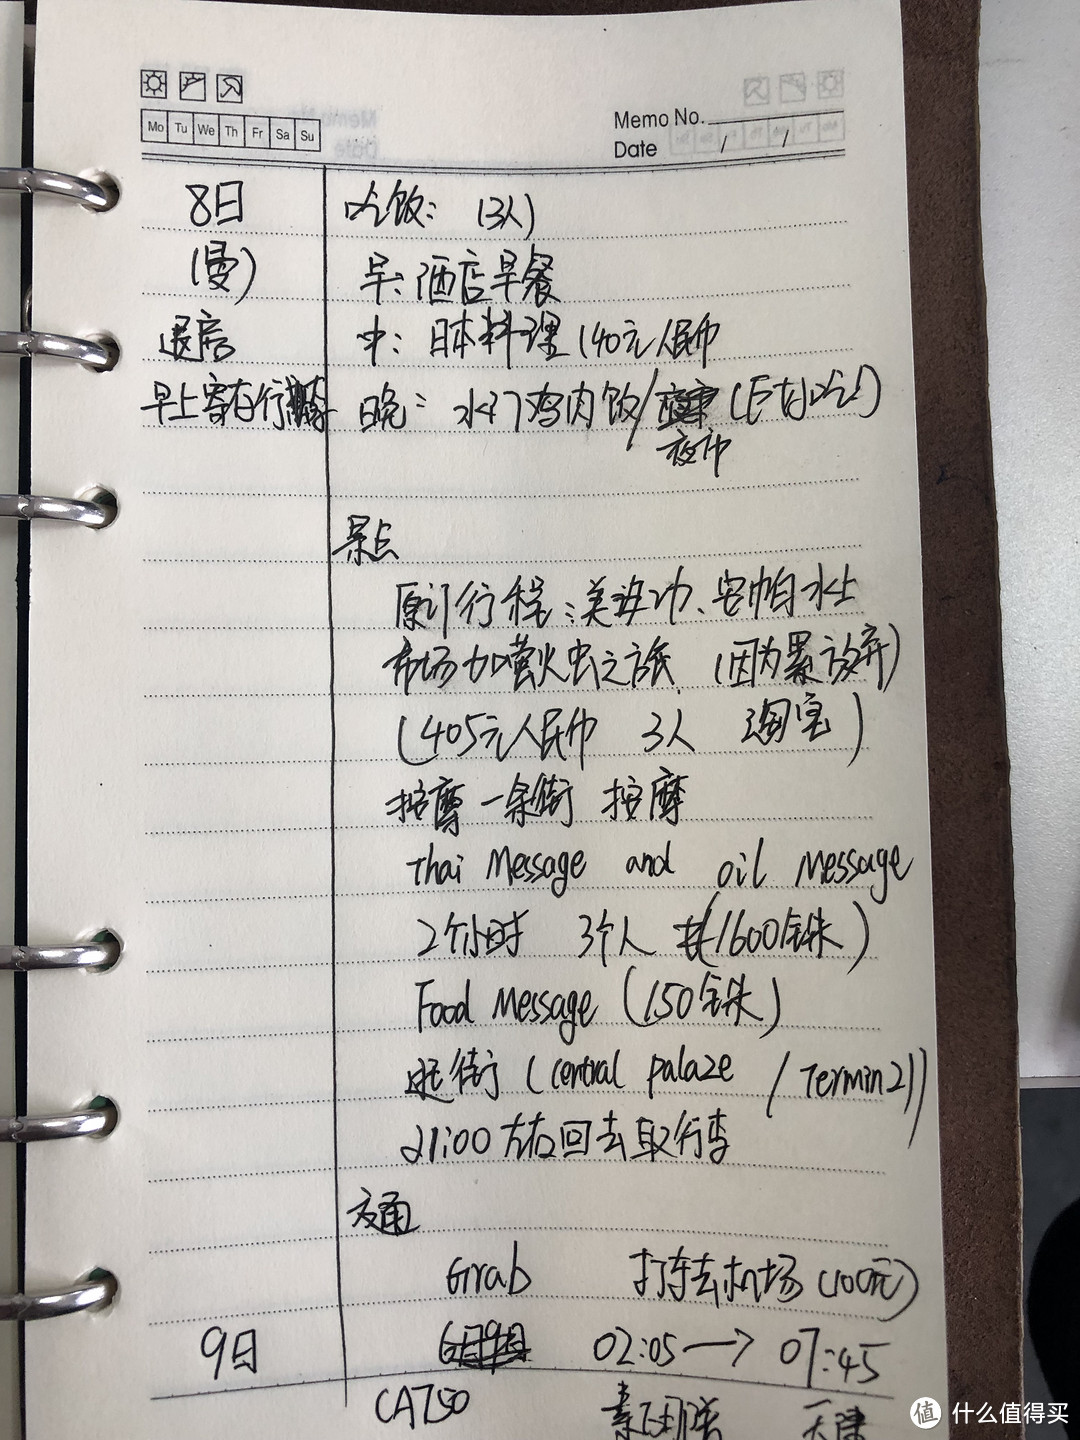 Mo Tu We Th Fr Sa Su
Memo No.
Date / /
8日 吃饭: (3人)
(曼) 早: 酒店早餐
退房 中: 日本料理 140元人民币
早上寄存行李 晚: 水门鸡肉饭/
夜市
景点
原计行程: 美功、安帕水上
市场加萤火虫之旅 (因为累放弃)
(405元人民币 3人 淘宝)
按摩一条街 按摩
thai Message and oil Message
2个小时 3个人 共(1600泰铢)
Food Message (150泰铢)
逛街 (Central palaze / Termin21)
21:00左右回去取行李
交通
Grab 打车去机场 (100元)
9日 02:05 → 07:45
CA750 素万那普 天津
值 什么值得买